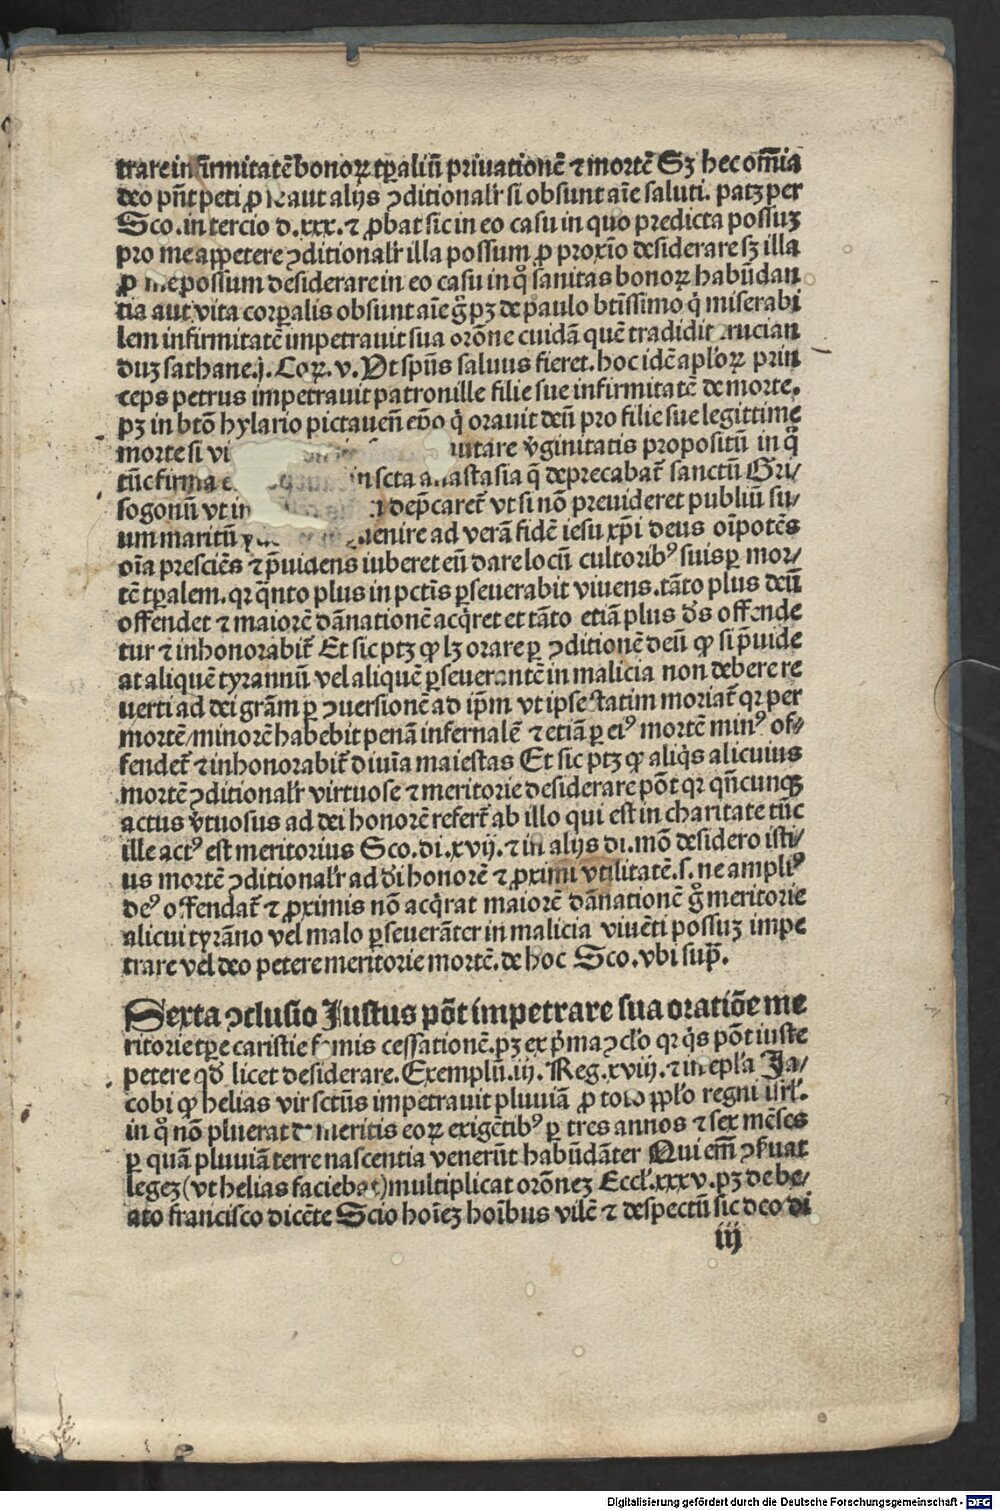 trare infirmitatē bonoꝝ tp̄aliū priuationē ⁊ mortē Sꝫ hec om̄ia
deo pn̄t peti ꝓ aut alijs ↄditional'r si obsunt aīe saluti. patꝫ per
Sco. in tercio d. xxx. ⁊ ꝓbat sic in eo casu in quo predicta possuꝫ
pro me appetere ↄditional'r illa possum ꝓ proxīo desiderare sꝫ illa
ꝓ me possum desiderare in eo casu in q̊ sanitas bonoꝝ habūdan
tia aut vita corꝑalis obsunt aīe g̊ pꝫ de paulo btīssimo q̇ miserabi
lem infirmitatē impetrauit sua orōne cuidā quē tradidit crucian
duꝫ sathane .j. Coꝝ. v. Vt spūs saluus fieret. hoc idē apl'oꝝ prin
ceps petrus impetrauit patronille filie sue infirmitatē de morte.
pꝫ in btō hylario pictauen̄ ep̄o q̇ orauit deū pro filie sue legittime
morte si vi mutare v̓ginitatis propositū in q̊
tūc firma e in scta anastasia q̄ deprecabat̄ sanctū Gri-
sogonū vt in dep̄caret̄ vt si nō preuideret publiū su-
um maritū uenire ad verā fidē iesu xp̄i deus oīpotēs
oīa presciēs ⁊ p̄uidens iuberet eū dare locū cultorib⁹ suis ꝑ mor-
tē tp̄alem. qꝛ q̄nto plus in pctīs ꝑseuerabit viuens. tāto plus deū
offendet ⁊ maiorē dānationē acq̇ret et tāto etiā plus d̓s offende
tur ⁊ inhonorabit̄ Et sic ptꝫ ꝙ lꝫ orare ꝑ ↄditionē deū ꝙ si p̄uide
at aliquē tyrannū vel aliquē ꝑseuerantē in malicia non debere re
uerti ad dei grām ꝑ ↄuersionē ad ip̄m vt ipse statim moriat̄ qꝛ per
mortē minorē habebit penā infernalē ⁊ etiā ꝑ ei⁹ mortē min⁹ of-
fendet̄ ⁊ inhonorabit̄ diuīa maiestas Et sic ptꝫ ꝙ aliq̇s alicuius
mortē ↄditional'r virtuose ⁊ meritorie desiderare pōt qꝛ qn̄cunqꝫ
actus v̓tuosus ad dei honorē refert̄ ab illo qui est in charitate tūc
ille act⁹ est meritorius Sco. di. xvij. ⁊ in alijs di. mō desidero isti-
us mortē ↄditional'r ad d̓i honorē ⁊ ꝓximi vtilitatē. s. ne ampli⁹
de⁹ offendat̄ ⁊ ꝓximis nō acq̇rat maiorē dānationē g̊ meritorie
alicui tyrāno vel malo ꝑseuerāter in malicia viuēti possuꝫ impe
trare vel deo petere meritorie mortē. de hoc Sco. vbi sup̄.
Sexta ↄclusio Justus pōt impetrare sua oratiōe me
ritorie tp̄e caristie famis cessationē. pꝫ ex p̄ma ↄcl'o qꝛ q̇s pōt iuste
petere qd̓ licet desiderare. Exemplū. iij. Reg. xviij. ⁊ in epl'a Ja-
cobi ꝙ helias vir sctūs impetrauit pluuiā ꝓ toto ppl'o regni isrl'.
in q̊ nō pluerat meritis eoꝝ exigētib⁹ ꝑ tres annos ⁊ sex mēses
ꝑ quā pluuiā terre nascentia venerūt habūdāter Qui em̄ ↄseruat
legeꝫ (vt helias faciebat) multiplicat orōneꝫ Eccl'. xxxv. pꝫ de be-
ato francisco dicēte Scio hoīeꝫ hoībus vilē ⁊ despectū sic deo di
iij
Digitalisierung gefördert durch die Deutsche Forschungsgemeinschaft - DFG